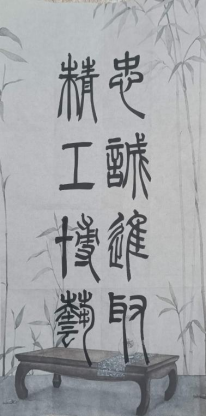 忠誠進取
精工博藝